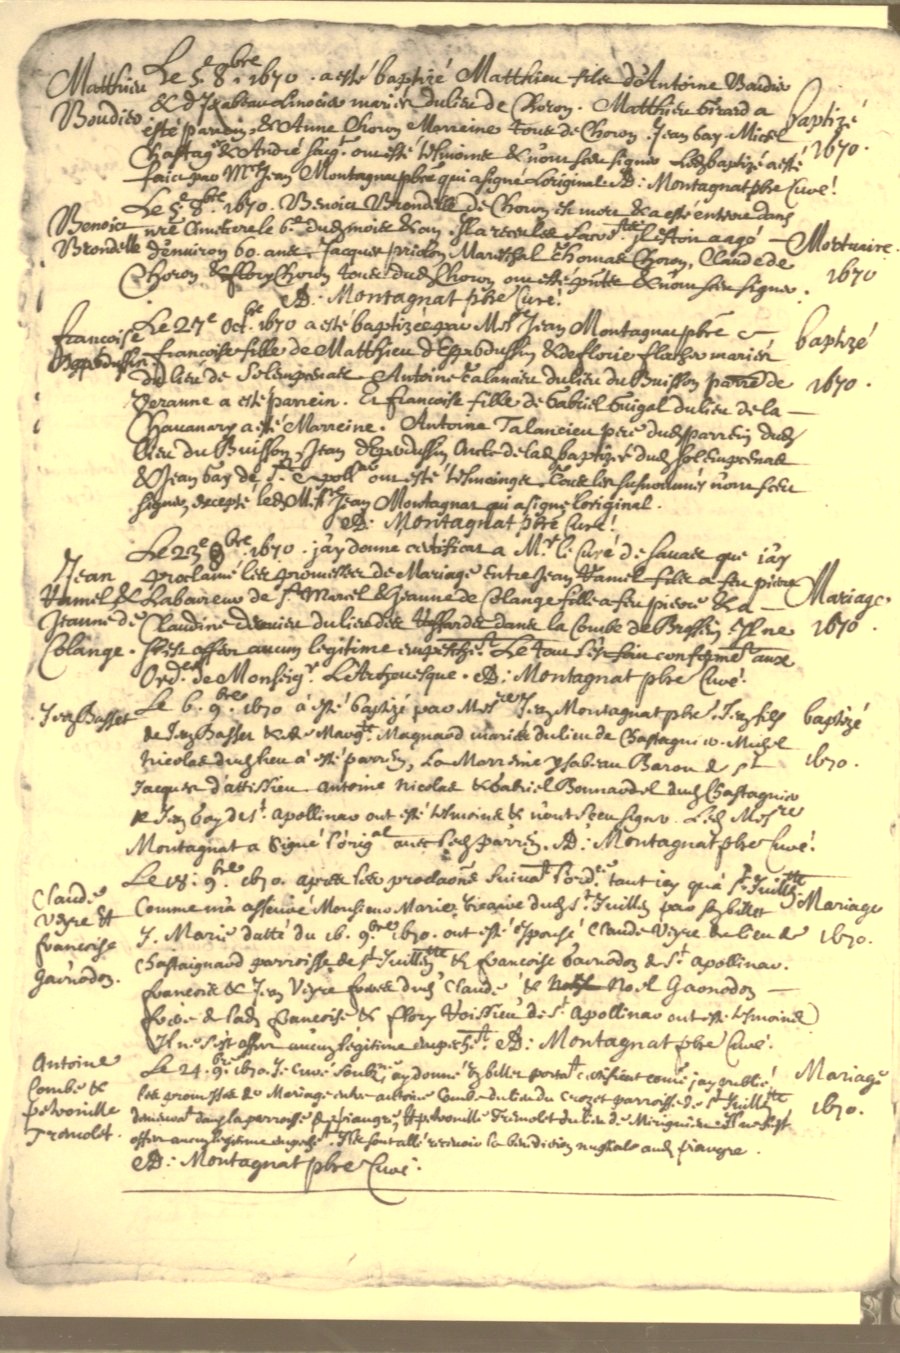 Matthieu Boudier
Le 5e 8bre 1670. a esté baptizé Matthieu fils d'Antoine Boudier
& d'Ysabeau Linocier mariés du lieu de Choron. Matthieu Girard a
esté parrein, & Anne Choron Marreine tous de Choron. Jean Gay Michel
Chastag & André Faig ont esté tesmoins & n'ont sceu signer Led baptizé a esté
faict par Mre Jean Montagnat pbre qui a signé L'original. AD: Montagnat pbre Curé.
baptizé
1670.
Benoict Brondelle
Le 5e 8bre 1670. Benoict Brondelle de Choron est mort & a esté enterré dans
nre Cimetiere le 6e dud mois & an. Il a receu les Sacrts Il estoit aagé
d'environ 60 ans. Jacques pridon Mareschal Thomas Choron, Claude de
Choron & flory Choron tous dud Choron ont esté pnts & n'ont sceu signer.
AD: Montagnat pbre Curé.
Mortuaire.
1670
francoise
Le 27e Octbre 1670 a esté baptizée par Mesre Jean Montagnat pbre
francoise fille de Matthieu d'Espedussin & de florie flacher mariés
du lieu de Solempniac Antoine Talancieu du lieu du Buisson parrsse de
Veranne a esté parrein. Et francoise fille de Gabriel Guigal du lieu de la
Chavanary a esté Marreine. Antoine Talancieu pere dud parrein dud
lieu du Buisson, Jean d'Espedussin Oncle de lad baptizée dud Solempniac
& Jean Gay de St Apollar ont esté tesmoings Tous les susnommés n'ont sceu
signer excepté led Mesre Jean Montagnat qui a signé l'original.
AD: Montagnat pbre Curé.
baptizé
1670.
Jean Ramel & Jeanne de Colange.
Le 23e 8bre 1670. j'ay donné certificat a Mr le Curé de Savas que j'ay
proclamé les promesses de Mariage entre Jean Ramel fils a feu pierre
Laboureur de St Marcel & Jeanne de Colange fille a feu pierre & a
Claudine du lieu des dans la Combe de Il ne
s'est offert aucun legitime empeschet. Le tout s'est fait conformt aux
Ordes de Monseigr L'Archevesque. AD: Montagnat pbre Curé.
Mariage.
1670.
Jean Basset
Le 6. 9bre 1670 à esté baptizé par Mesre Jean Montagnat pbre. Jean fils
de Jean Basset & de Margte Magnard mariés du lieu de Chastagnier. Michel
Nicolas dud lieu à esté parrein, La Marreine Ysabeau Baron de St
Jacques d'attissieu Antoine Nicolas & Gabriel Bonnardel dud Chastagnier
& Jean Gay de St Apollinar ont esté tesmoins & n'ont sceu signer. Led Mesre
Montagnat a signé l'origal avec led parrein. AD: Montagnat pbre Curé.
baptizé
1670.
Claude Veyre & francoise Gaonodon.
Le 18. 9bre 1670. apres les proclaons suivat l'orde. tant icy qu'a St Juillien
Comme m'a asseuré Monsieur Marie Vicaire dud St Juillien par son billet
J. Marie datté du 16. 9bre 1670. ont esté espousé Claude Veyre du lieu de
Chastaignard parroisse de St Juillien & francoise Gaonodon de St Apollinar.
francois & Jean Veyre freres dud Claude & Noel Gaonodon
frere de lad francoise & flory Voissieu de St Apollinar ont esté tesmoins
Il ne s'est offert aucun legitime empescht. AD: Montagnat pbre Curé.
Mariage
1670.
Antoine Combe & petronille Tremolet.
Le 24. 9bre 1670. Je Curé soubz.né ay donné un billet portat certificat comme j'ay publié
les promesses de Mariage entre antoine Combe du lieu du Crozet parroisse de St Juillien
demeurat dans la parroisse de piaugre, & petronille Tremolet du lieu de Merignieu. Il ne s'est
offert aucun legitime empeht. Ils sont allé recevoir la benediction nuptiale aud piaugre.
AD: Montagnat pbre Curé.
Mariage
1670.